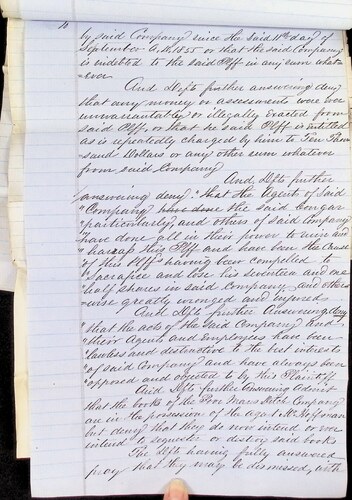 by said Company since the said 11th day of
September A.D. 1855 or that the said Company
is indebted to the said Plff in any sum what
ever
And Defts further answering deny
that any money or assessments were ever
unwarrantably or illegally exacted from
said Plff, or that he said Plff is entitled
as is repeatedly charged by him to Ten Thou
sand Dollars or any other sum whatsoever
from said Company
And Defts further
answering deny "that the Agent of said
"Company have done the said
"particularly, and others of said Company
"have done all in their power to injure and
"harrass this Plff and have been the Cause
of this Plffs having been compelled to
"Sacrifice and lose his seventeen and one
"half shares in said Company and other
wise greatly wronged and injured
And Defts further Answering deny
"that the acts of the said Company and
"their Agents and Employees have been
"lawless and destructive to the best interests
"of said Company and have always been
"opposed and objected to by this Plaintiff
And Defts further Answering Admit
that the books of the Poor Mans Ditch Company
are in the possession of the Agent Mr Hoffman
but deny that they do now intend or ever
intend to sequester or destroy said books
The Defts having fully answered
pray that they may be dismissed, with